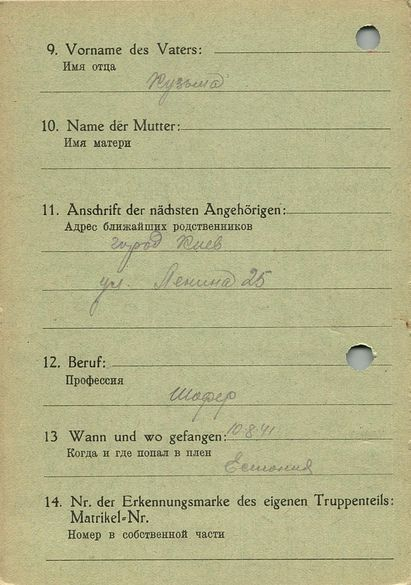 9. Vorname des Vaters:
Имя отца
Кузьма
10. Name der Mutter:
Имя матери
11. Anschrift der nächsten Angehörigen:
Адрес ближайших родственников
город Киев
ул. Ленина 25
12. Beruf:
Профессия
Шофер
13 Wann und wo gefangen: 10.8.41
Когда и где попал в плен
Естония
14. Nr. der Erkennungsmarke des eigenen Truppenteils:
Matrikel-Nr.
Номер в собственной части